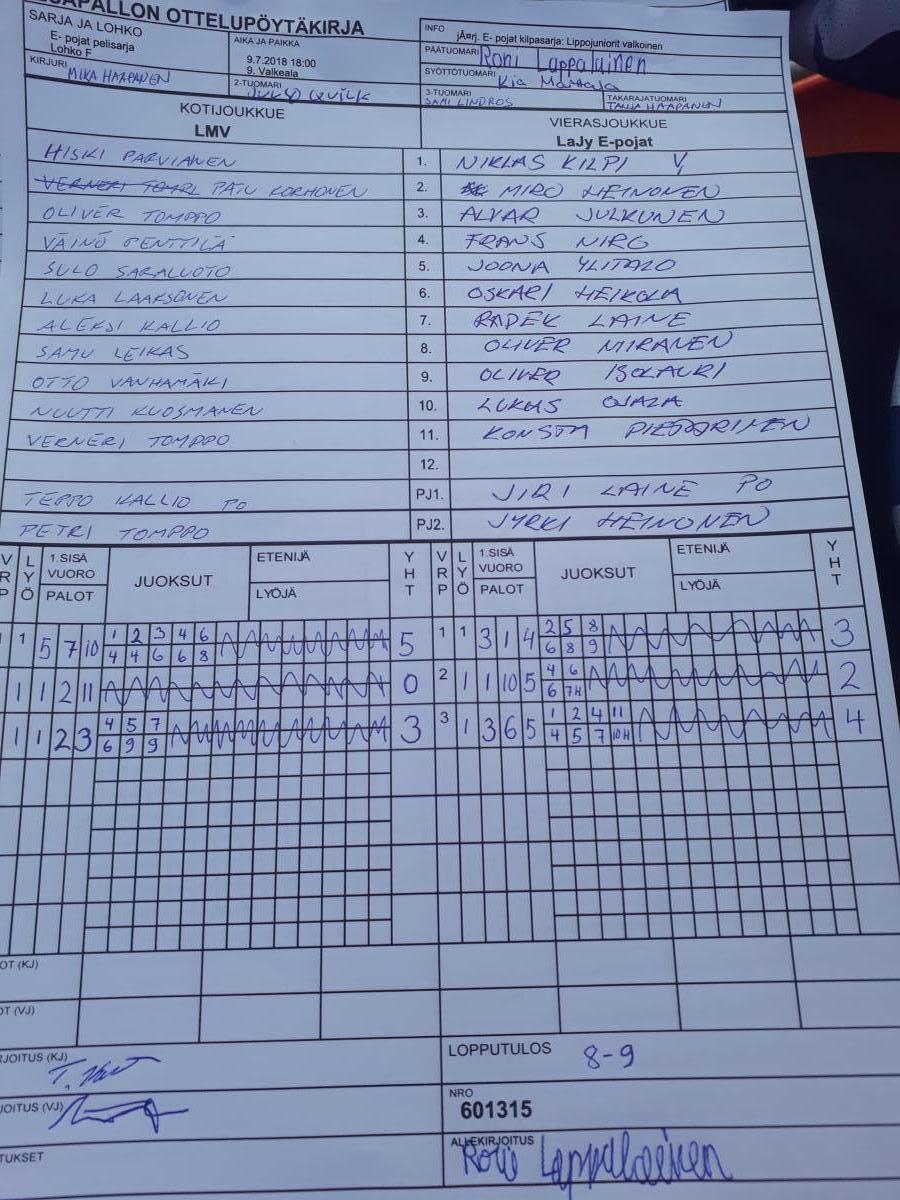 SAPALLON OTTELUPÖYTÄKIRJA
SARJA JA LOHKO
E- pojat pelisarja
Lohko F
AIKA JA PAIKKA
9.7.2018 18:00
9. Valkeala
INFO
jÄ¤rj. E- pojat kilpasarja: Lippojuniorit valkoinen
PÄÄTUOMARI Roni Lappalainen
KIRJURI MIKA HAAPANEN
2-TUOMARI
SYÖTTÖTUOMARI Kia
3-TUOMARI SAMI LINDROS
TAKARAJATUOMARI TANJA HAAPANEN
KOTIJOUKKUE
LMV
VIERASJOUKKUE
LaJy E-pojat
HISKI PARVIANEN 1. NIKLAS KILPI V,
VERNERI PATU KORHONEN 2. MIRO HEINONEN
OLIVER TOMPPO 3. ALVAR JULKUNEN
VÄINÖ PENTTILÄ 4. FRANS NIRO
SULO SARALUOTO 5. JOONA YLITALO
LUKA LAAKSONEN 6. OSKARI HEIKOLA
ALEKSI KALLIO 7. RADEK LAINE
SAMU LEIKAS 8. OLIVER MIRANEN
OTTO VANHAMÄKI 9. OLIVER ISOLAURI
NUUTTI KUOSMANEN 10. LUKAS OJALA
VERNERI TOMPPO 11. KONSTA
12.
TEPPO KALLIO PO PJ1. JIRI LAINE PO
PETRI TOMPPO PJ2. JYRKI HEINONEN
VRP LYÖ 1.SISÄ VUORO PALOT JUOKSUT ETENIJÄ LYÖJÄ YHT VRP LYÖ 1.SISÄ VUORO PALOT JUOKSUT ETENIJÄ LYÖJÄ YHT
1 5 7 10 1 2 3 4 6 5 1 1 3 1 4 2 5 8 3
4 4 6 6 8 6 8 9
1 1 2 11 0 2 1 1 10 5 4 6 2
6 7H
1 1 2 3 4 5 7 3 3 1 3 6 5 1 2 4 11 4
6 9 9 4 5 7 10H
OT (KJ)
OT (VJ)
RJOITUS (KJ)
LOPPUTULOS 8-9
JOITUS (VJ)
NRO
601315
TUKSET
ALLEKIRJOITUS Roni Lappalainen